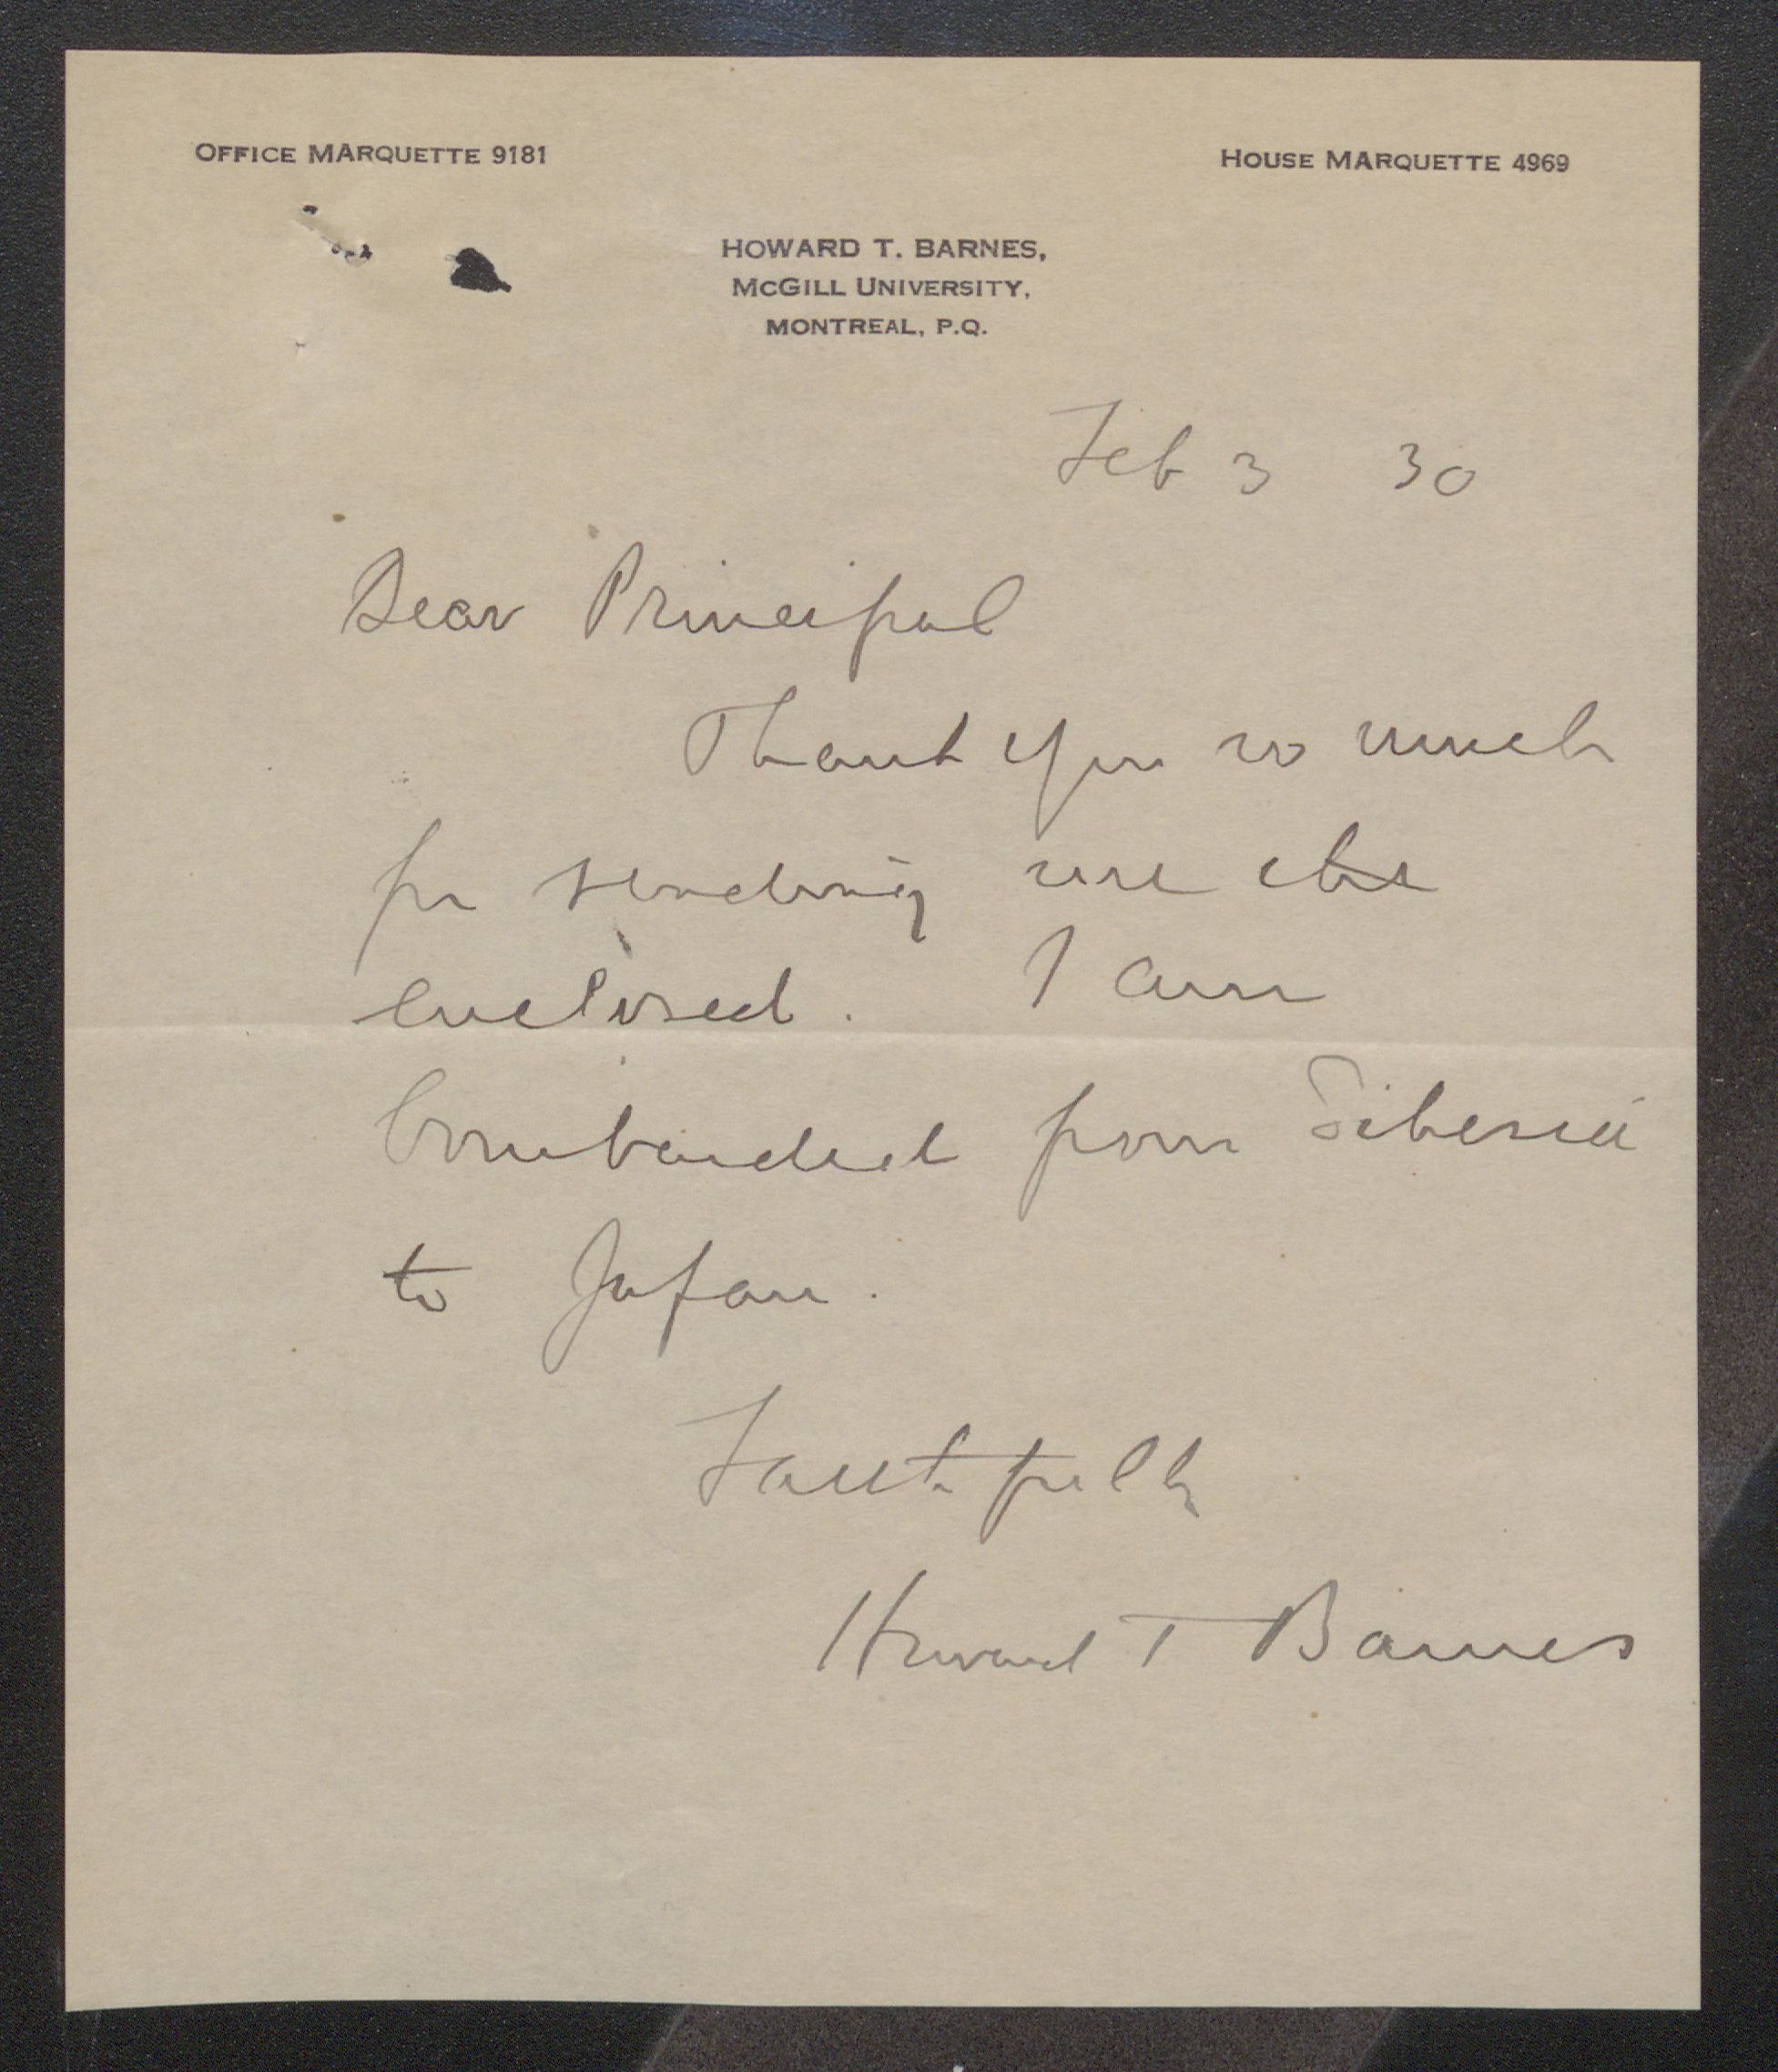 OFFICE MARQUETTE 9181
HOUSE MARQUETTE 4969
HOWARD T. BARNES,
MCGILL UNIVERSITY,
MONTREAL, P.Q.
Feb 3 30
Dear Principal
Thank you so much
for sending me the
enclosed. I am
bombarded from Siberia
to Japan.
Faithfully
Howard T Barnes